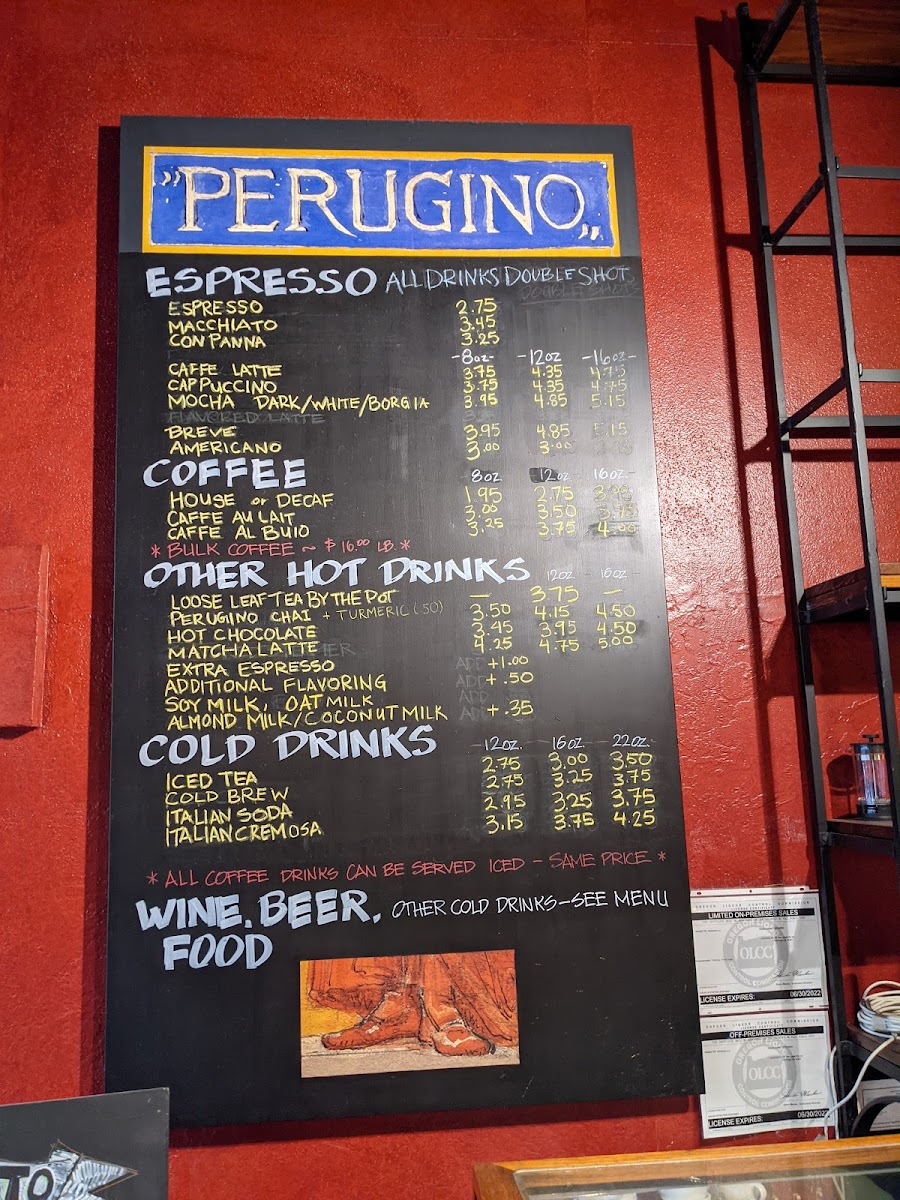 "PERUGINO"
ESPRESSO ALL DRINKS DOUBLE SHOT
ESPRESSO 2.75
MACCHIATO 3.45
CON PANNA 3.25
-8oz- -12oz -16oz-
CAFFE LATTE 3.75 4.35 4.75
CAPPUCCINO 3.75 4.35 4.75
MOCHA DARK/WHITE/BORGIA 3.95 4.85 5.15
FLAVORED LATTE
BREVE 3.95 4.85 5.15
AMERICANO 3.00 3.00
COFFEE 8oz 12oz 16oz-
HOUSE or DECAF 1.95 2.75
CAFFE AU LAIT 3.00 3.50
CAFFE AL BUIO 3.25 3.75 4.00
* BULK COFFEE ~ $16.00 LB. *
OTHER HOT DRINKS 12oz - 16oz -
LOOSE LEAF TEA BY THE POT — 3.75 —
PERUGINO CHAI + TURMERIC (.50) 3.50 4.15 4.50
HOT CHOCOLATE 3.45 3.95 4.50
MATCHA LATTE 4.25 4.75 5.00
EXTRA ESPRESSO ADD +1.00
ADDITIONAL FLAVORING ADD +.50
SOY MILK, OAT MILK
ALMOND MILK/COCONUT MILK +.35
COLD DRINKS -12oz. 16oz. 22oz.
ICED TEA 2.75 3.00 3.50
COLD BREW 2.75 3.25 3.75
ITALIAN SODA 2.95 3.25 3.75
ITALIAN CREMOSA 3.15 3.75 4.25
* ALL COFFEE DRINKS CAN BE SERVED ICED - SAME PRICE *
WINE. BEER. OTHER COLD DRINKS - SEE MENU
FOOD
OREGON LIQUOR CONTROL COMMISSION
LIMITED ON-PREMISES SALES
OLCC
LICENSE EXPIRES: 06/30/2022
OREGON LIQUOR CONTROL COMMISSION
OFF-PREMISES SALES
OLCC
LICENSE EXPIRES: 06/30/2022
TO